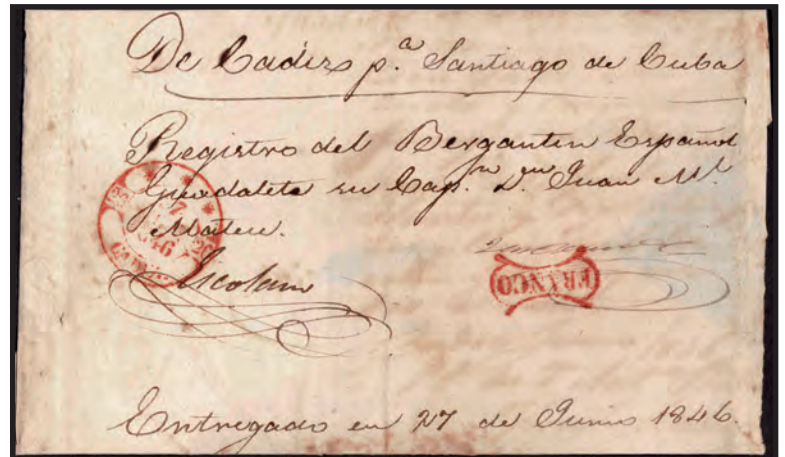 De Cadiz p.ª Santiago de Cuba
Registro del Bergantin Español
Guadalete su Cap.n D.n Juan M.l
Mateu.
Escolano
FRANCO
Entregado en 27 de Junio 1846.